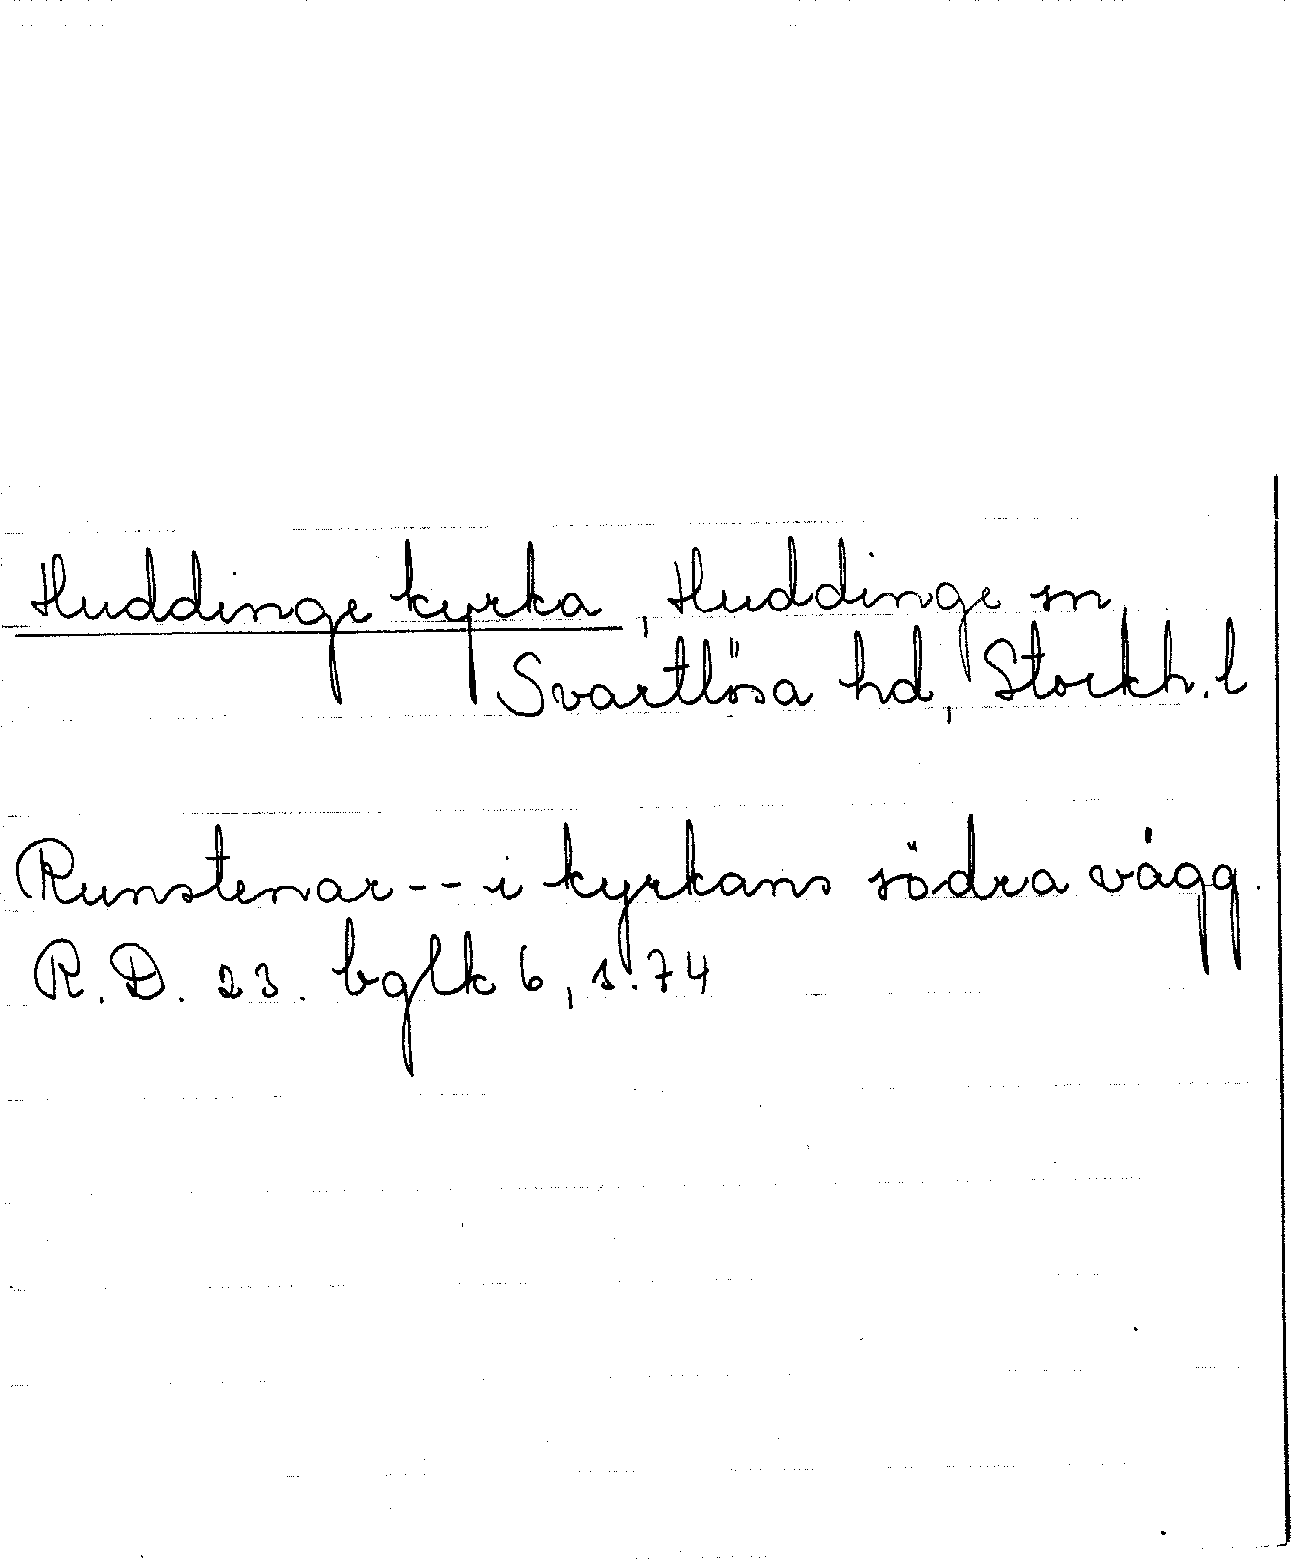 Huddinge kyrka, Huddinge sn,
Svartlösa hd, Stockh. l
Runstenar -- i kyrkans södra vägg.
R.D. 23. bglk 6, s. 74